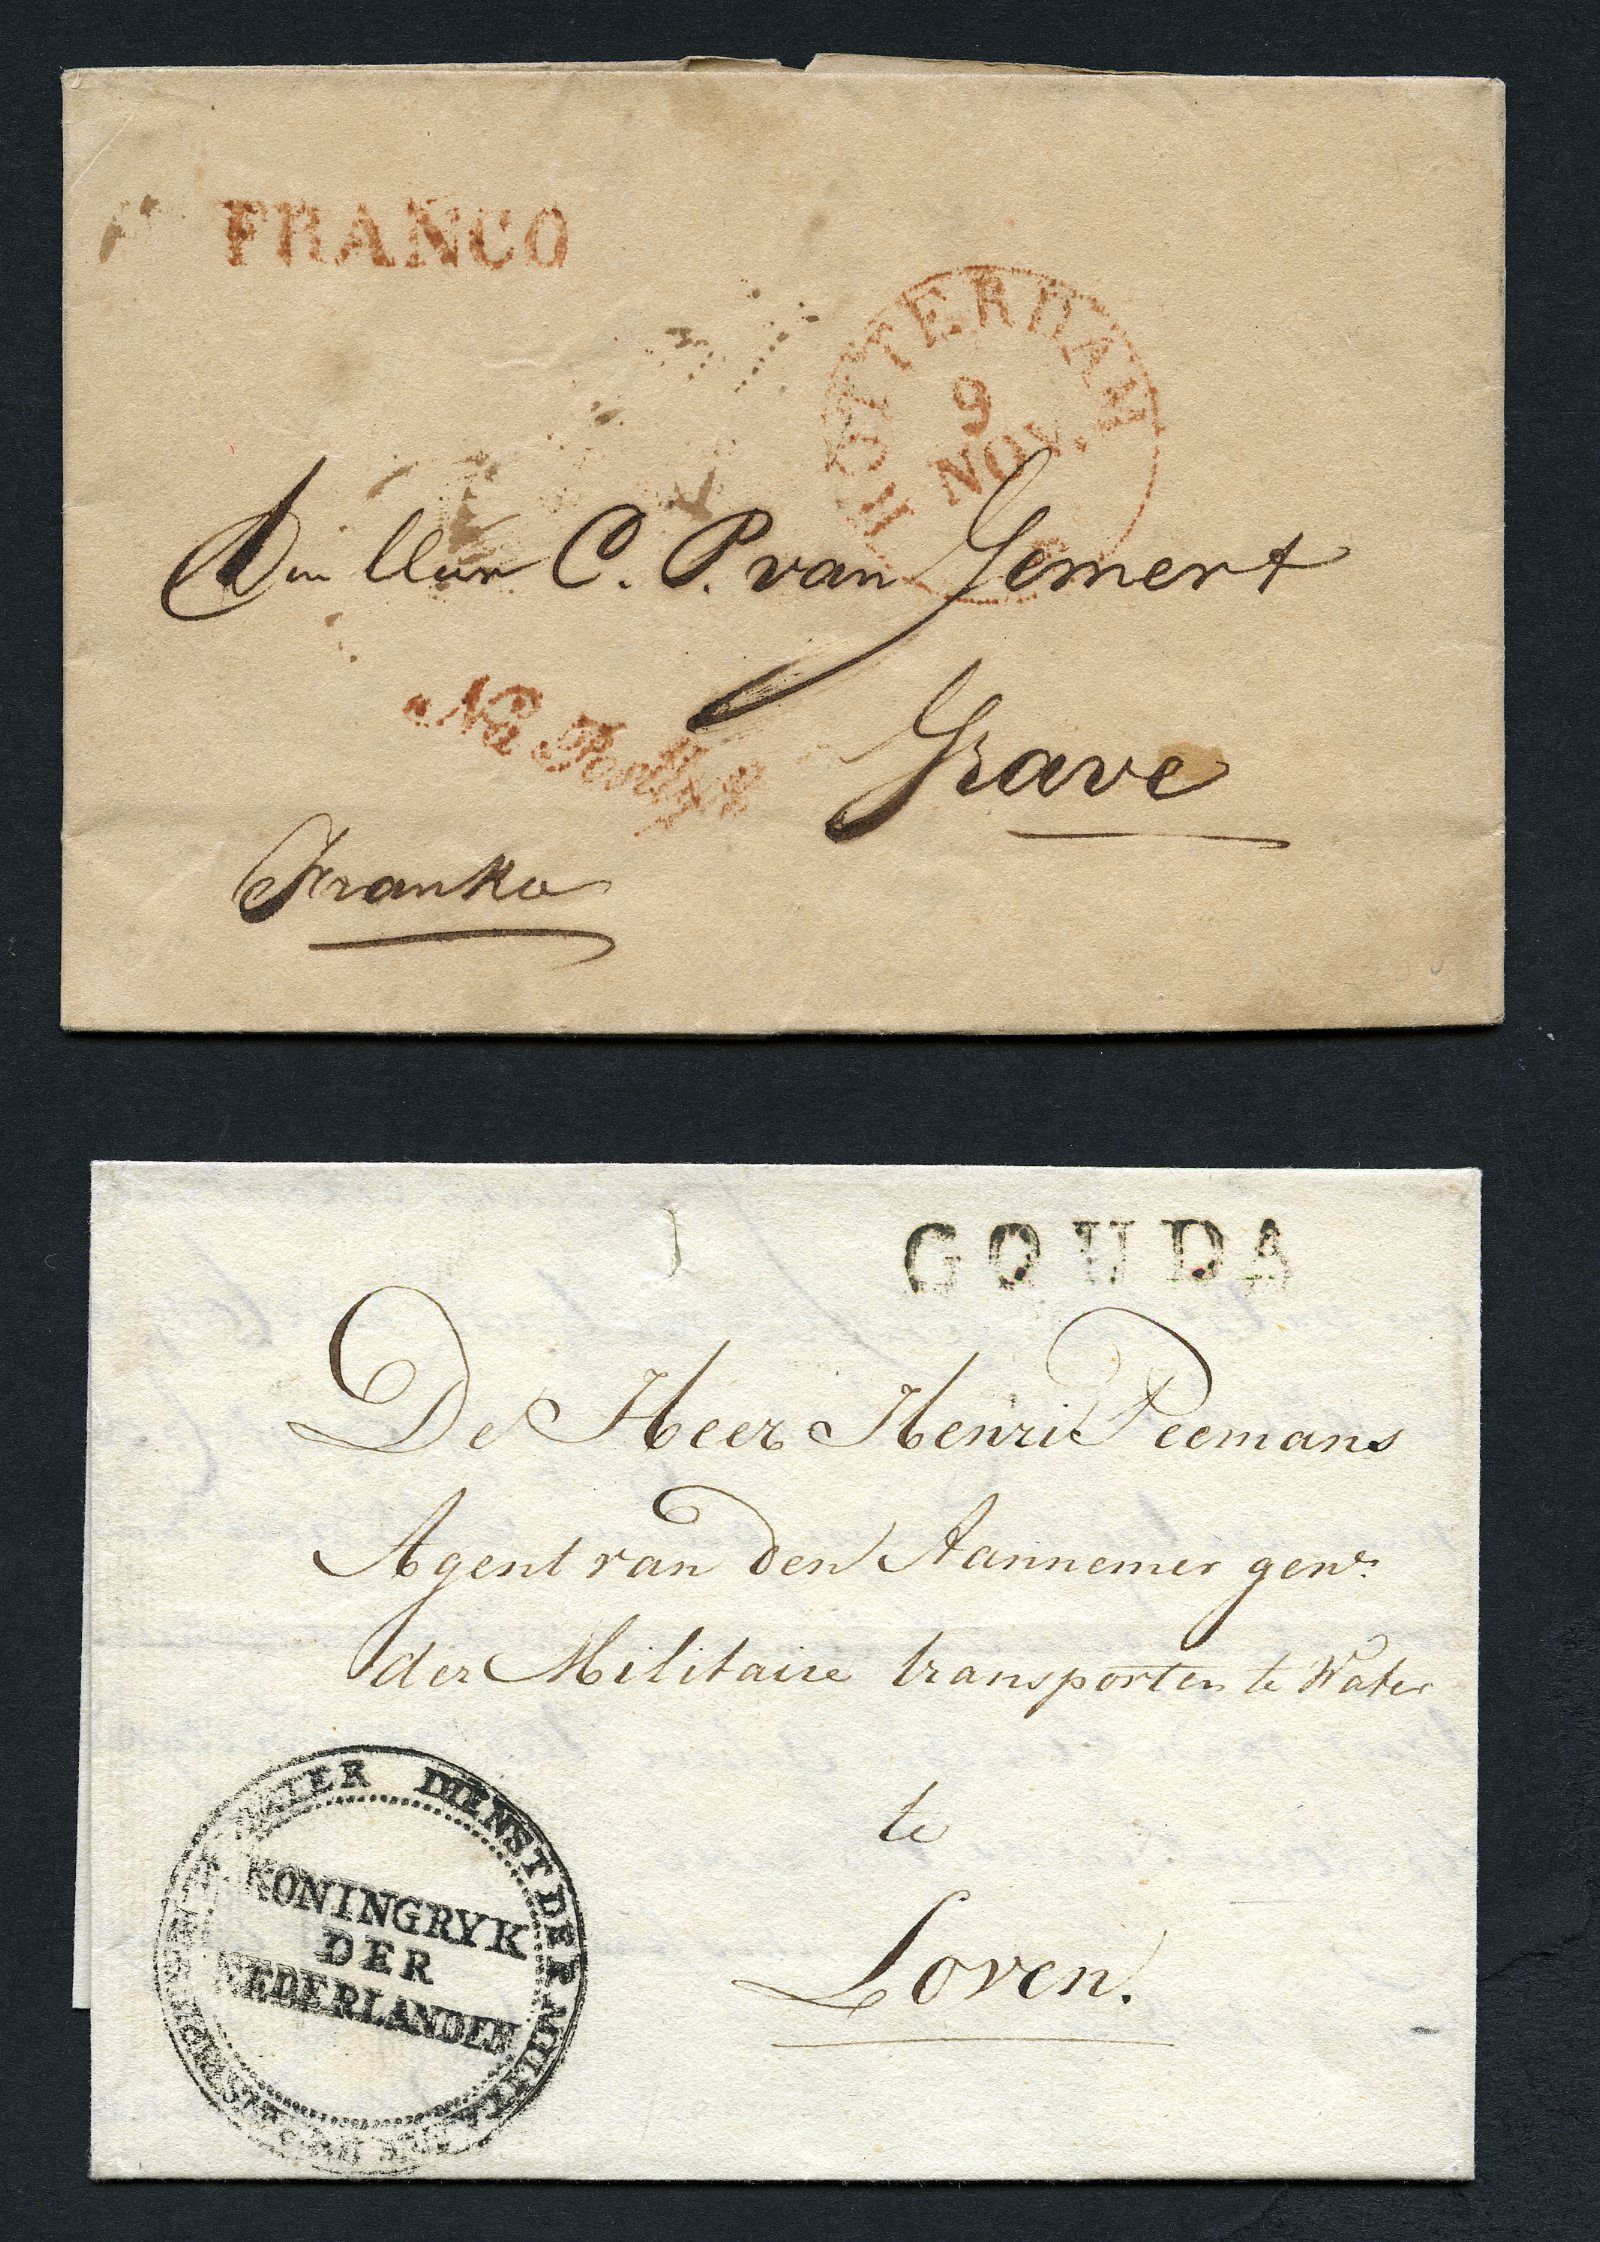 FRANCO
ROTTERDAM
9
NOV.
Den Heer C. P. van Gemert
Na Posttyd
Grave
Franko
GOUDA
De Heer Henri Peemans
Agent van den Aannemer genl.
der Militaire transporten te Water
te
Loven.
WATER DIENST DER MILITAIRE
KONINGRYK
DER
NEDERLANDEN